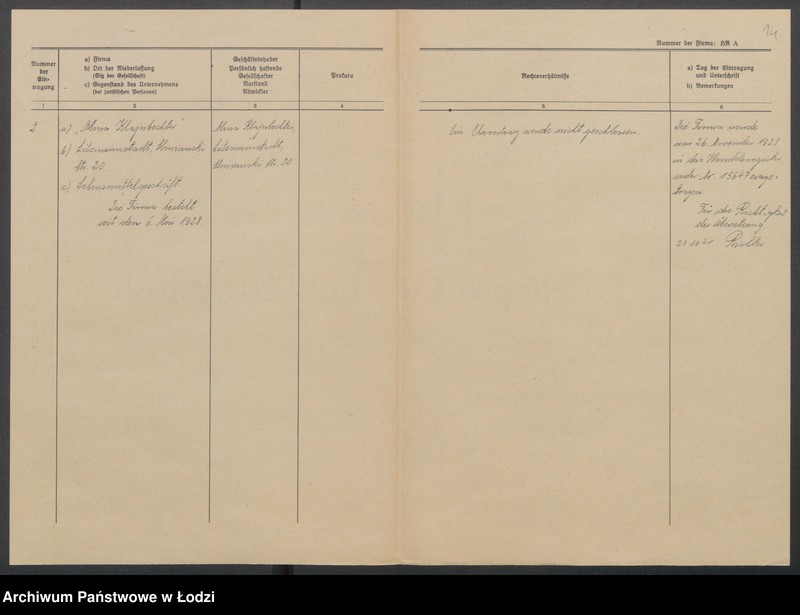 14
Nummer der Firma: HR A
Nummer
der
Ein-
tragung
a) Firma
b) Ort der Niederlassung
(Sitz der Gesellschaft)
c) Gegenstand des Unternehmens
(bei juristischen Personen)
Geschäftsinhaber
Persönlich haftende
Gesellschafter
Vorstand
Abwickler
Prokura
Rechtsverhältnisse
a) Tag der Eintragung
und Unterschrift
b) Bemerkungen
1
2
3
4
5
6
2
a) "
b) Litzmannstadt,
Nr. 20.
c)
Die Firma besteht
seit dem 6. Mai 1928.
Litzmannstadt,
Nr. 20
Ein Ehevertrag wurde nicht geschlossen.
Die Firma wurde
am 26. November 1928
in das Handelsregister
unter Nr. 15647 einge-
tragen.
Für die Richtigkeit
der Übersetzung
Archiwum Państwowe w Łodzi